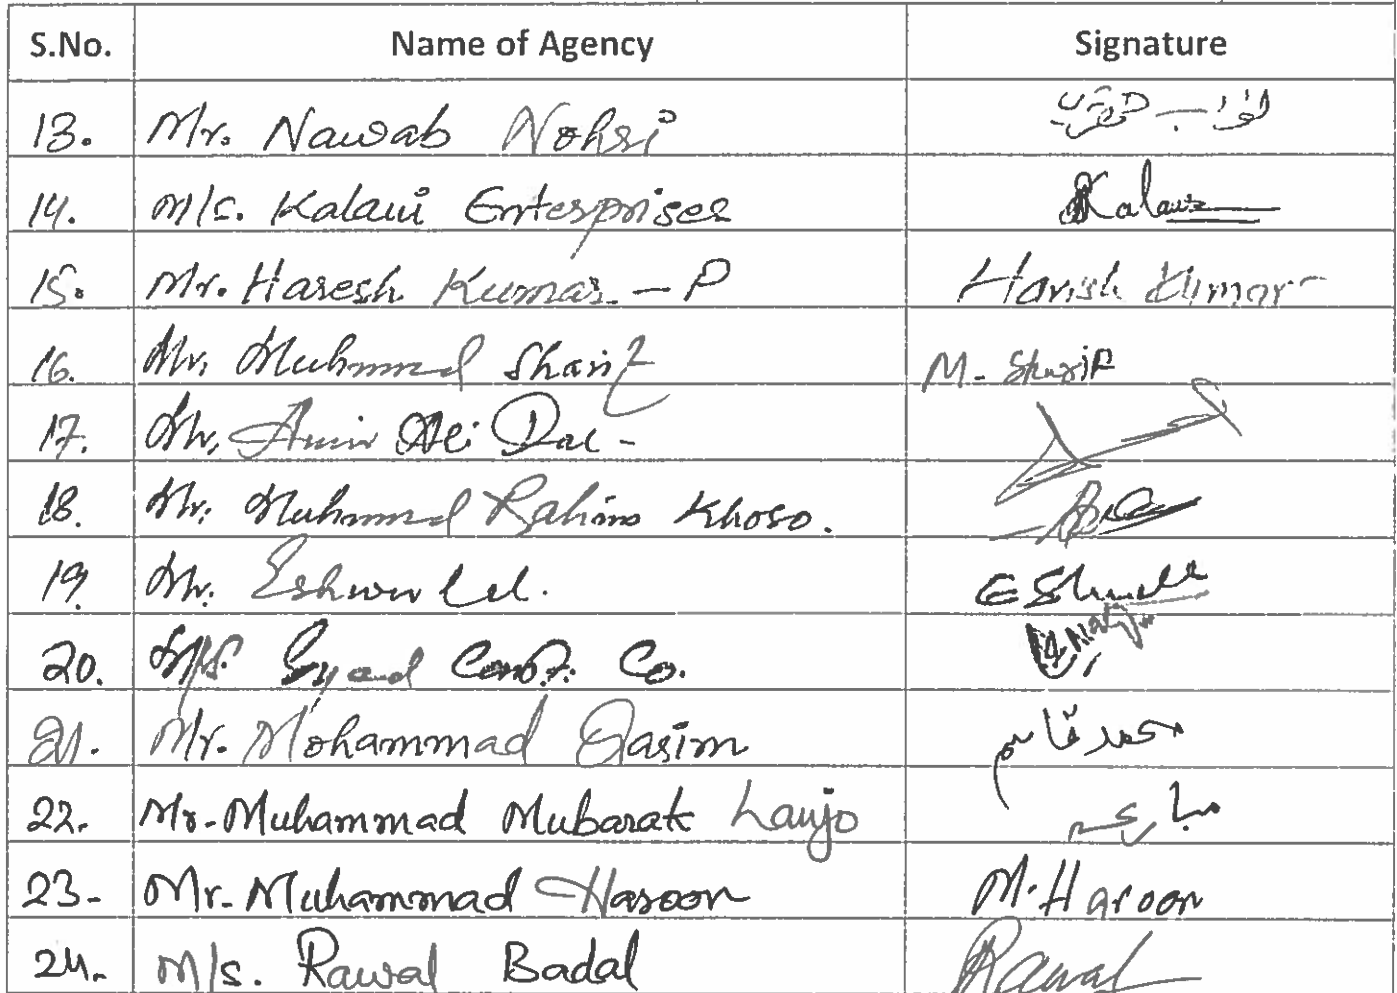 S.No. Name of Agency Signature
13. Mr. Nawab Nohri نواب
14. M/s. Kalani Enterprises Kalani
15. Mr. Haresh Kumar - P Harish Kumar
16. Mr. Muhmmad Sharif M- Sharif
17. Mr. Amir Ali Dal -
18. Mr. Muhmmad Rahim Khoso.
19. Mr. Eshwer Lal.
20. M/s. Syed Const: Co.
21. Mr. Mohammad Qasim محمد قاسم
22. Mr. Muhammad Mubarak Lanjo
23- Mr. Muhammad Haroon M. Haroon
24. M/s. Rawal Badal Rawal